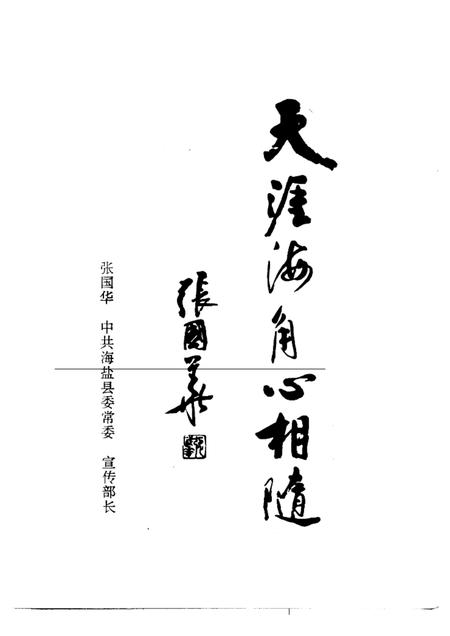 天涯海角心相随
張國华
张国华 中共海盐县委常委 宣传部长